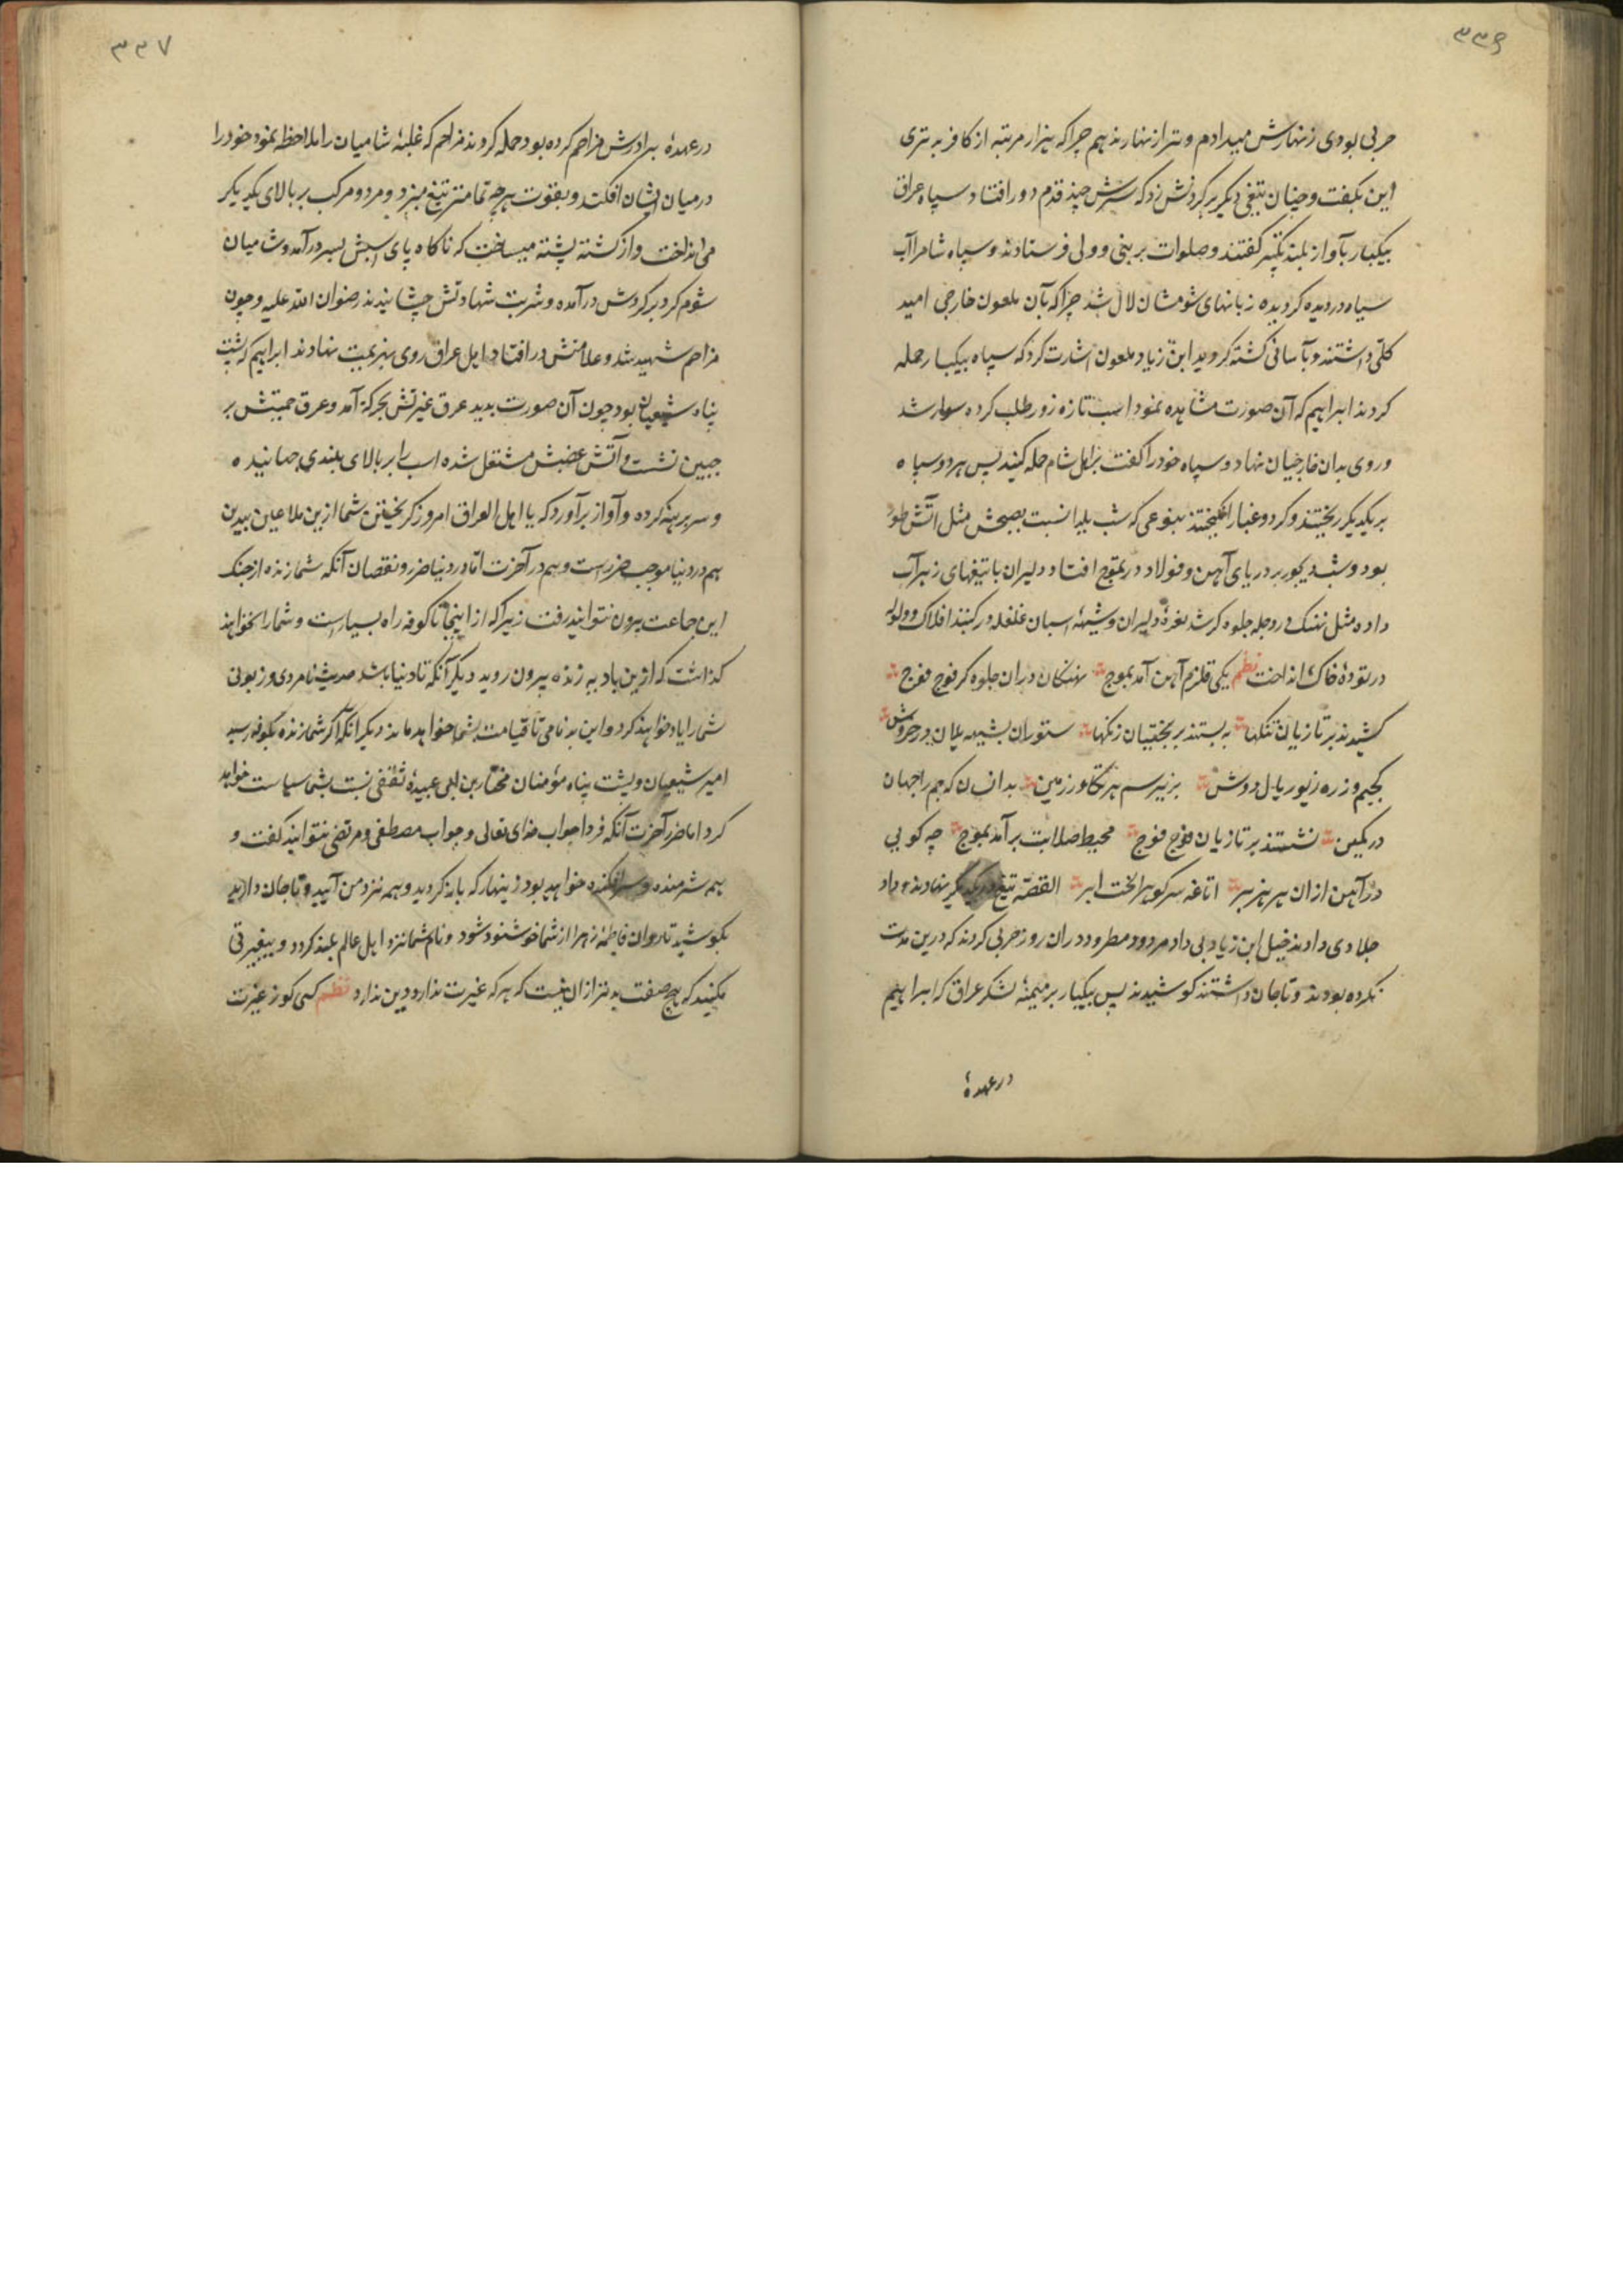 ۳۳۶
حربی بودی زنهارش میدادم و ترا زنهار ندهم چرا که هزار مرتبه از کافر بدتری
این بگفت و چنان تیغی دیگر بر گردنش زد که سرش چند قدم دور افتاد سپاه عراق
بیکبار بآواز بلند تکبیر گفتند و صلوات بر نبی و ولی فرستادند و سپاه شام را آب
سیاه در دیده گردیده زبانهای شومشان لال شد چرا که بآن ملعون خارجی امید
کلی داشتند و بآسانی کشته گردید ابن زیاد ملعون اشارت کرد که سپاه بیکبار حمله
کردند ابراهیم که آن صورت مشاهده نمود اسب تازه زور طلب کرده سوار شد
و روی بدان خارجیان نهاد و سپاه خود را گفت بر اهل شام حمله کنید پس هر دو سپاه
بر یکدیگر ریختند و گرد و غبار انگیختند بنوعی که شب یلدا نسبت بصبحش مثل آتش طور
بود و شب دیجور بر دریای آهن و فولاد در تموج افتاد و دلیران با تیغهای زهرآب
داده مثل نهنگ در دجله جلوه گر شد نعرهٔ دلیران و شیههٔ اسبان غلغله در گنبد افلاک و ولوله
در تودهٔ خاک انداخت نظم یکی قلزم آهن آمد بموج نهنگان دران جلوه گر فوج فوج
کشیدند بر تازیان تنگها به بستند بر بختیان زنگها ستوران بشیهه یلان در خروش
کجیم و زره زیور یال و دوش بزیر سم هر تکاور زمین بدانسان که جم را جهان
در نگین نشستند بر تازیان فوج فوج محیط صلابت برآمد بموج چه کوبی
در آهن ازان هر هزبر اتاغه سر کوهرا لخت ابر القصه تیغ در یکدیگر نهادند و داد
جلادی دادند خیل ابن زیاد بی داد مردود مطرود دران روز حربی کردند که درین مدت
نکرده بودند و تا جان داشتند کوشیدند پس بیکبار بر میمنهٔ لشکر عراق که ابراهیم
در عهدهٔ
۳۳۷
در عهدهٔ برادرش مزاحم کرده بود حمله کردند مزاحم که غلبهٔ شامیان را ملاحظه نمود خود را
در میان ایشان افکند و بقوت هر چه تمامتر تیغ میزد و مرد و مرکب بر بالای یکدیگر
می انداخت و از کشته پشته میساخت که ناگاه پای اسبش بسر درآمد و شامیان
شوم گرد بر گردش درآمده و شربت شهادتش چشانیدند رضوان الله علیه و چون
مزاحم شهید شد و علامتش در افتاد اهل عراق روی بهزیمت نهادند ابراهیم که پشت
پناه شیعیان بود چون آن صورت بدید عرق غیرتش بحرکة آمد و عرق حمیتش بر
جبین نشست و آتش غضبش مشتعل شده اسب را بر بالای بلندی جهانیده
و سر برهنه کرده و آواز برآورد که یا اهل العراق امروز گریختن شما ازین ملاعین بیدین
هم در دنیا موجب ضرر است و هم در آخرت اما در دنیا ضرر و نقصان آنکه شما زنده از جنگ
این جماعت بیرون نتوانید رفت زیرا که از اینجا تا کوفه راه بسیار است و شما را نخواهند
گذاشت که ازین بادیه زنده بیرون روید دیگر آنکه تا دنیا باشد حدیث نامردی و زبونی
شما را یاد خواهند کرد و این بدنامی تا قیامت بشما خواهد ماند دیگر آنکه اگر شما زنده بکوفه رسید
امیر شیعیان و پشت پناه مؤمنان مختار بن ابی عبیدهٔ ثقفی نسبت بشما سیاست خواهد
کرد اما ضرر آخرت آنکه فردا جواب خدای تعالی و جواب مصطفی و مرتضی نتوانید گفت و
هم شرمنده و سرافکنده خواهید بود زینهار که باز گردید و همه نزد من آیید و تا جان دارید
بکوشید تا روان فاطمهٔ زهرا از شما خوشنود شود و نام شما نزد اهل عالم بلند گردد و بیغیرتی
مکنید که هیچ صفت بدتر ازان نیست که هر که غیرت ندارد دین ندارد نظم کسی کو ز غیرت